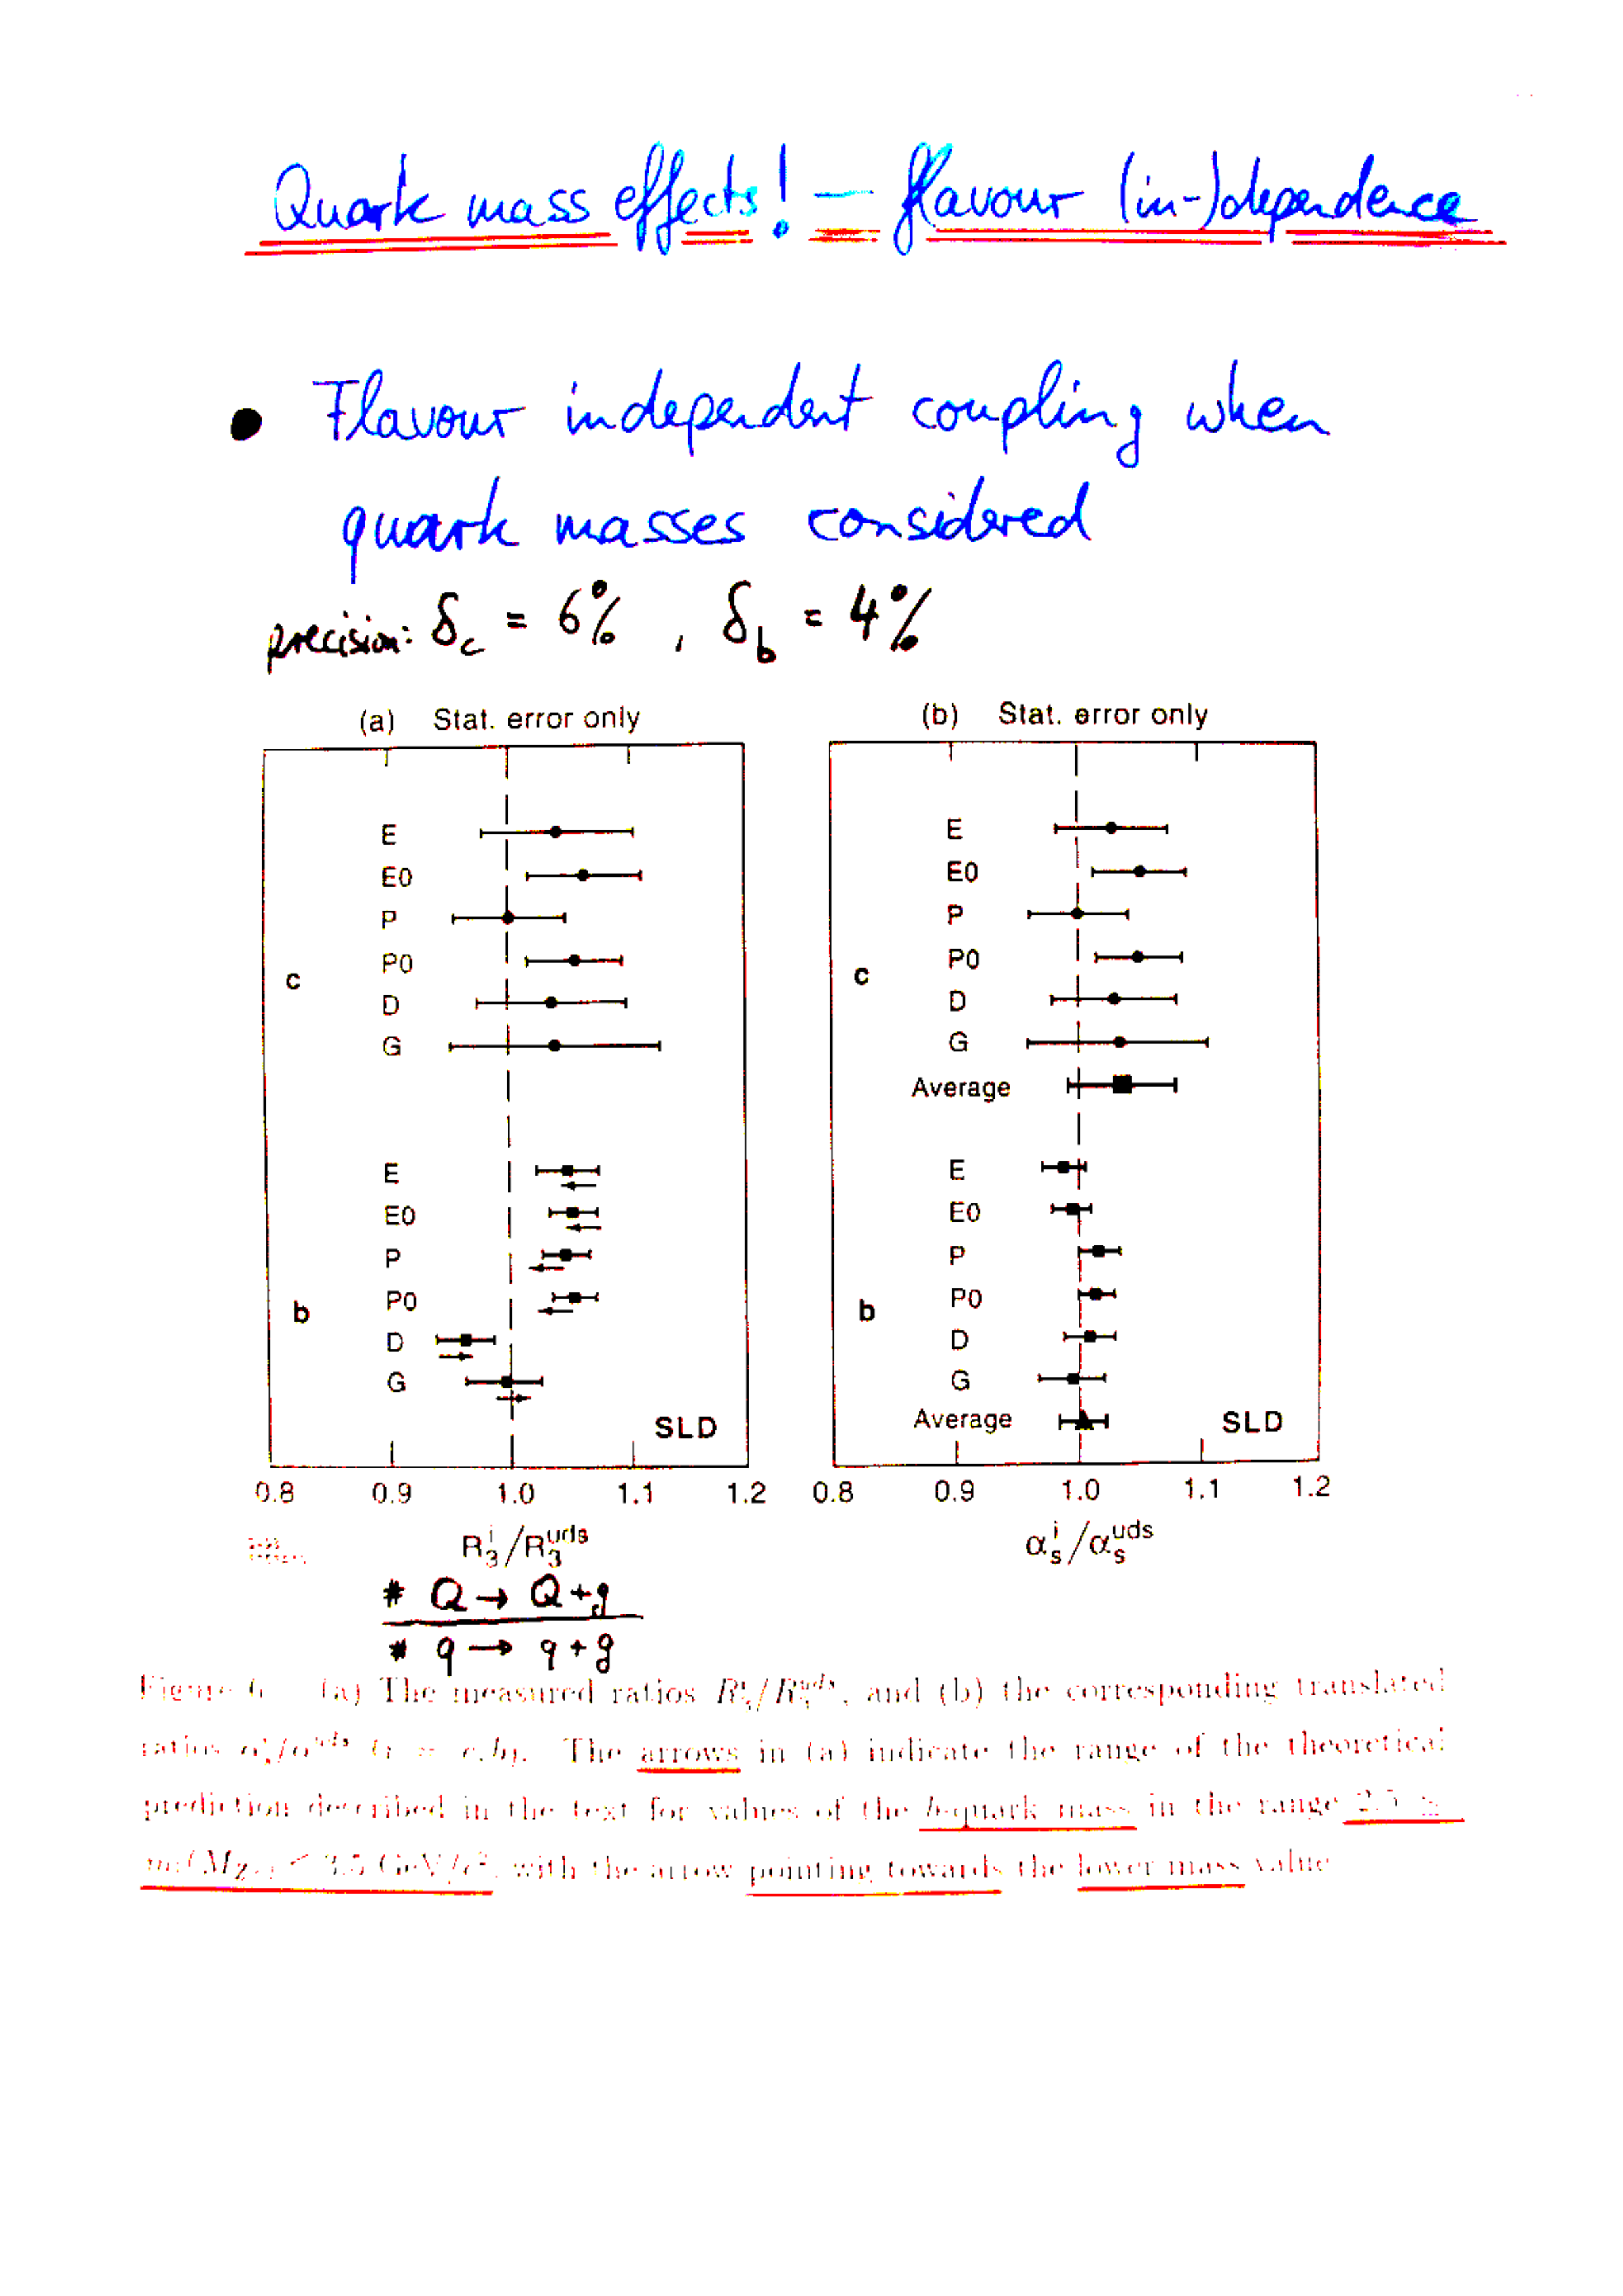 Quark mass effects! – flavour (in-)dependence
• Flavour independent coupling when
quark masses considered
precision: δc = 6% , δb = 4%
(a) Stat. error only
E
E0
P
P0
c
D
G
E
E0
P
P0
b
D
G
SLD
0.8 0.9 1.0 1.1 1.2
R₃ⁱ/R₃ᵘᵈˢ
(b) Stat. error only
E
E0
P
P0
c
D
G
Average
E
E0
P
P0
b
D
G
Average
SLD
0.8 0.9 1.0 1.1 1.2
αₛⁱ/αₛᵘᵈˢ
# Q → Q+g
# q → q+g
Figure 6. (a) The measured ratios R₃ⁱ/R₃ᵘᵈˢ, and (b) the corresponding translated
ratios αₛⁱ/αₛᵘᵈˢ (i = c,b). The arrows in (a) indicate the range of the theoretical
prediction described in the text for values of the b-quark mass in the range 2.5 ≤
m_b(M_Z) ≤ 3.5 GeV/c², with the arrow pointing towards the lower mass value